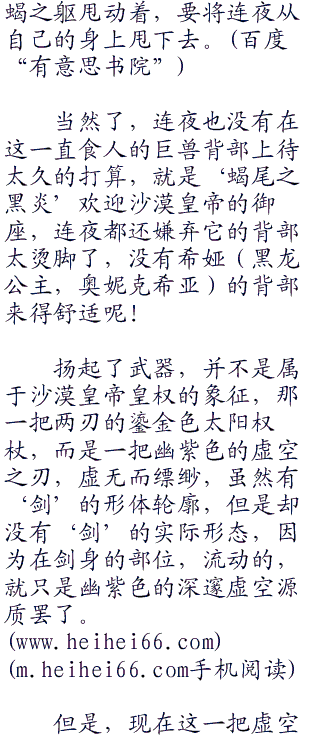 蝎之躯甩动着，要将连夜从
自己的身上甩下去。(百度
“有意思书院”)
当然了，连夜也没有在
这一直食人的巨兽背部上待
太久的打算，就是‘蝎尾之
黑炎’欢迎沙漠皇帝的御
座，连夜都还嫌弃它的背部
太烫脚了，没有希娅（黑龙
公主，奥妮克希亚）的背部
来得舒适呢！
扬起了武器，并不是属
于沙漠皇帝皇权的象征，那
一把两刃的鎏金色太阳权
杖，而是一把幽紫色的虚空
之刃，虚无而缥缈，虽然有
‘剑’的形体轮廓，但是却
没有‘剑’的实际形态，因
为在剑身的部位，流动的，
就只是幽紫色的深邃虚空源
质罢了。
(www.heihei66.com)
(m.heihei66.com手机阅读)
但是，现在这一把虚空